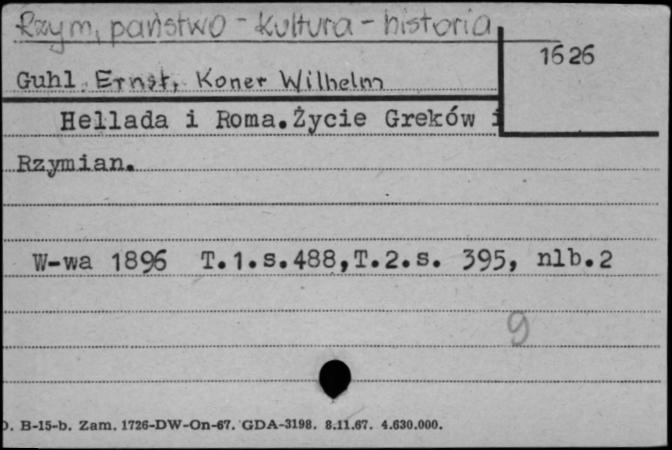 Rzym, państwo - kultura - historia
1626
Guhl Ernst, Koner Wilhelm
Hellada i Roma.Życie Greków i
Rzymian.
W-wa 1896 T.1.s.488,T.2.s. 395, nlb.2
9
. B-15-b. Zam. 1726-DW-On-67. GDA-3198. 8.11.67. 4.630.000.